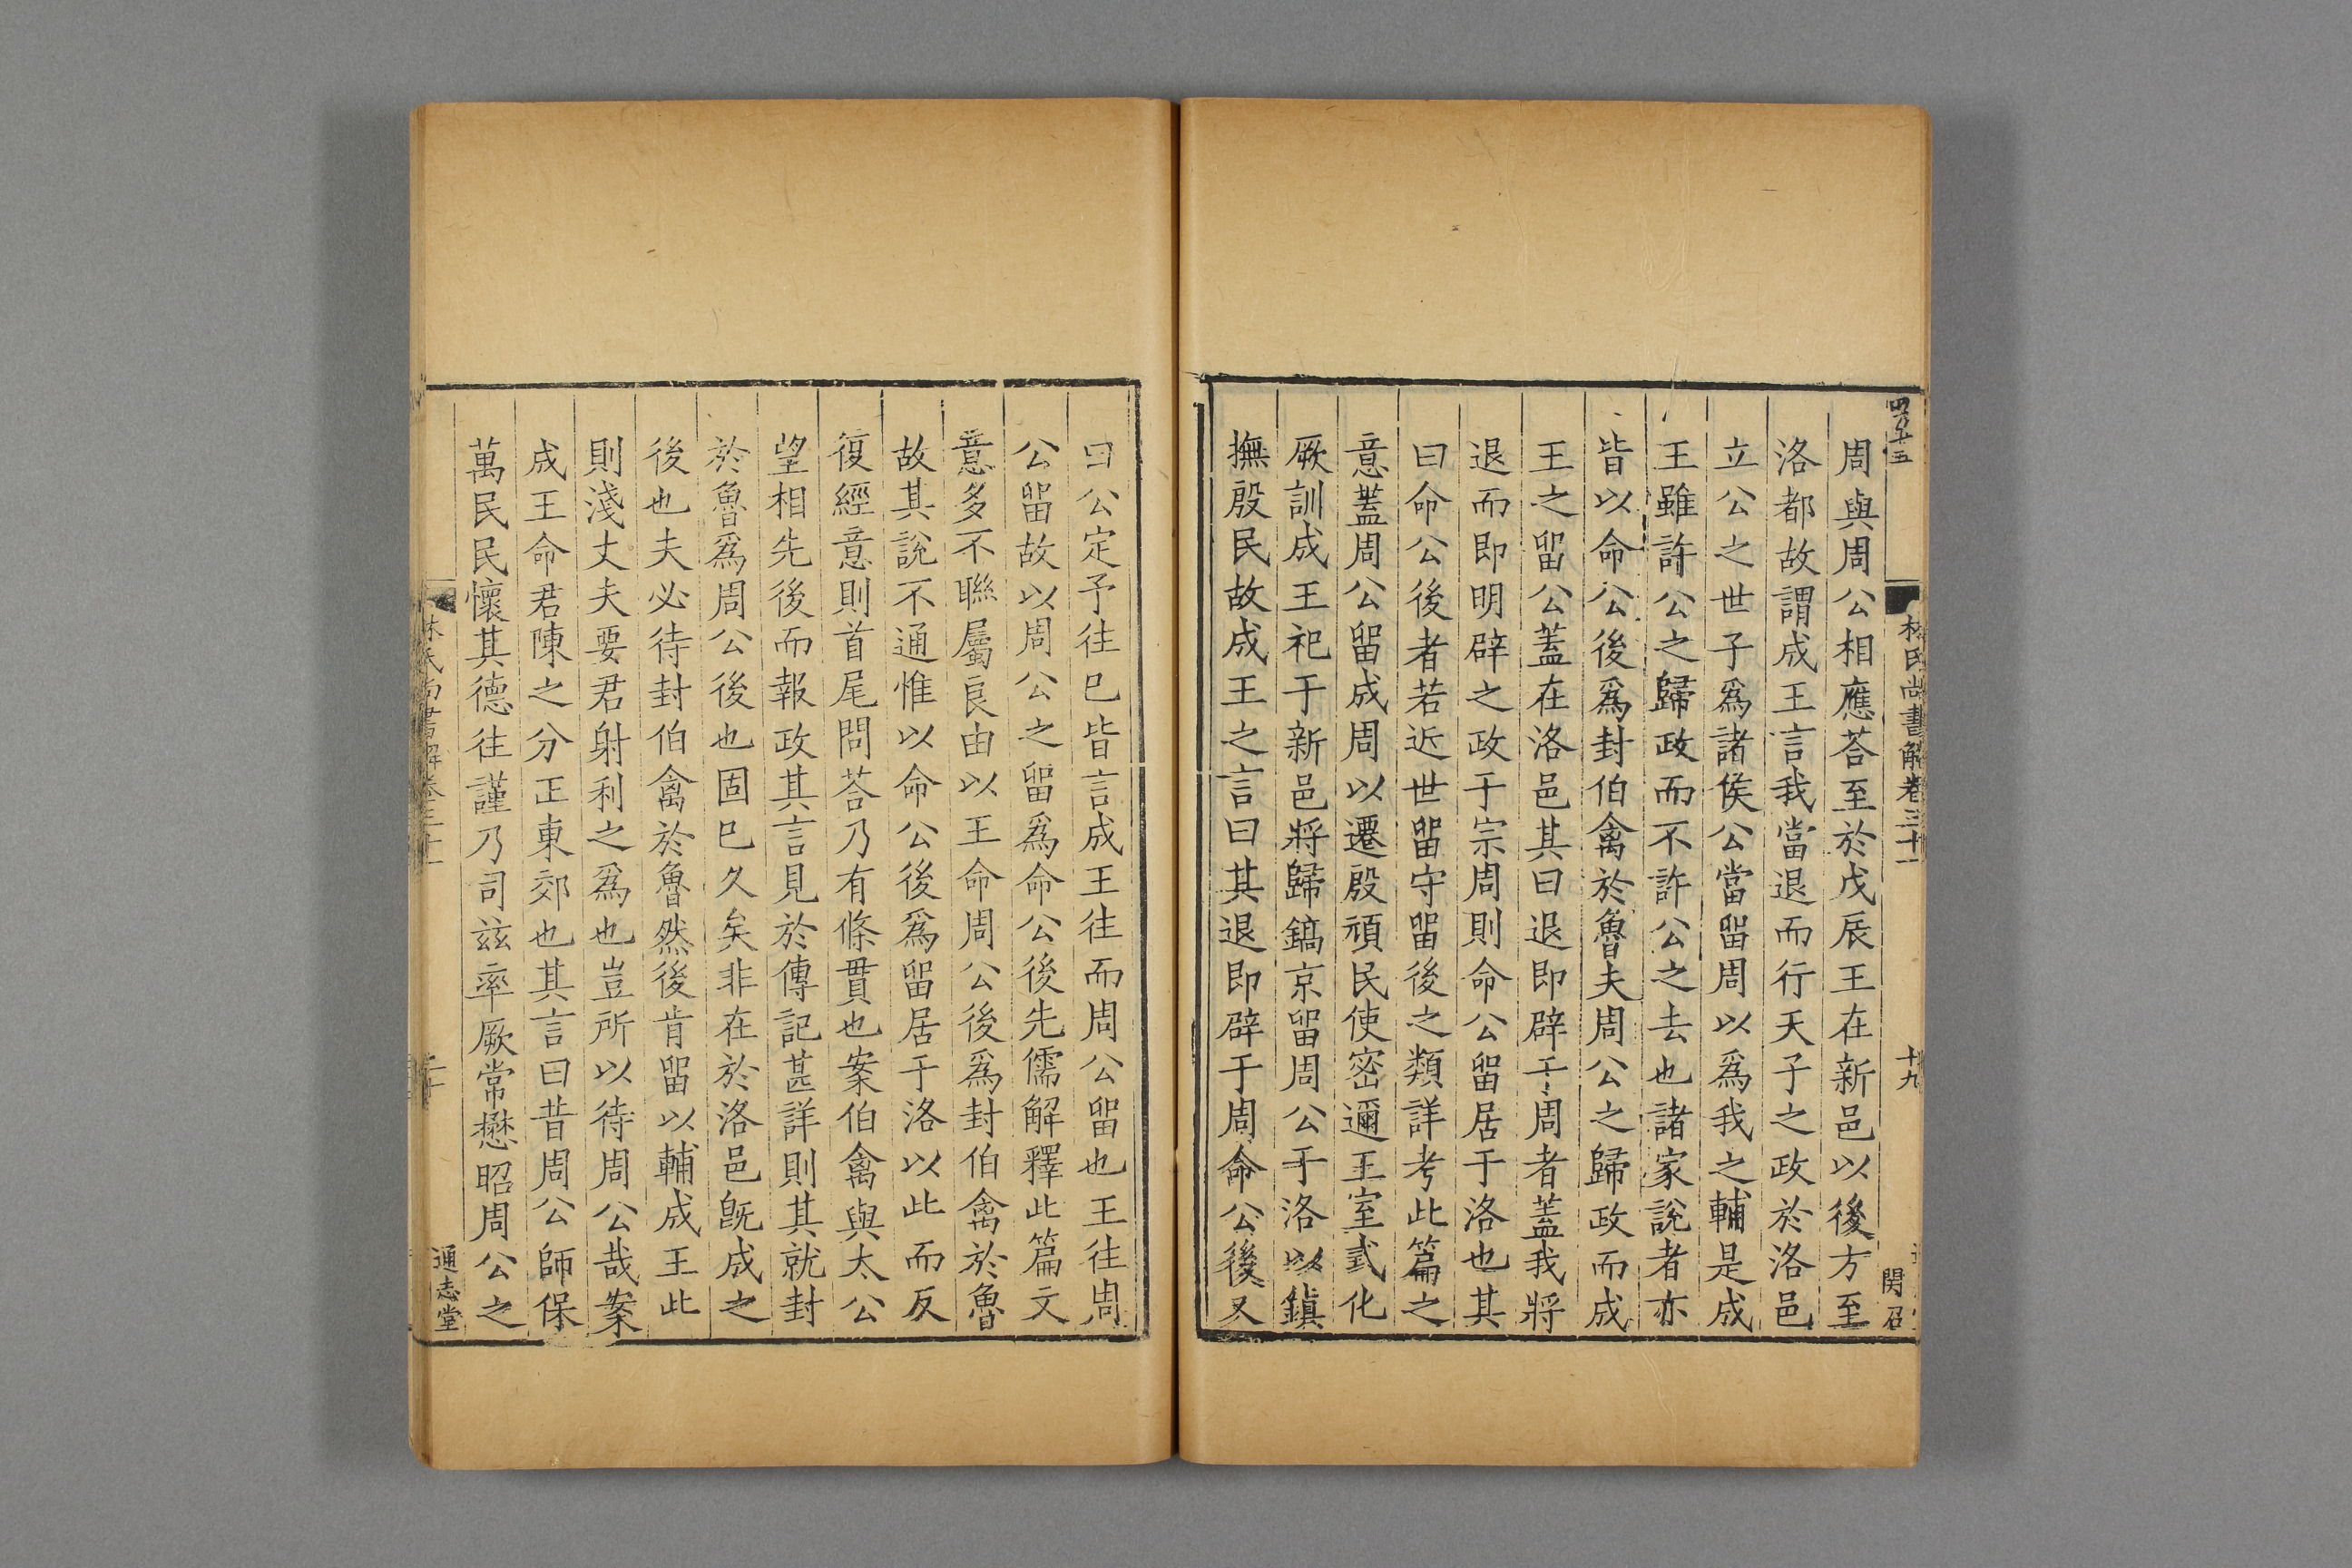 林氏尚書解卷三十一
十九
周與周公相應荅至於戊辰王在新邑以後方至
洛都故謂成王言我當退而行天子之政於洛邑
立公之世子爲諸侯公當留周以爲我之輔是成
王雖許公之歸政而不許公之去也諸家說者亦
皆以命公後爲封伯禽於魯夫周公之歸政而成
王之留公蓋在洛邑其曰退即辟于周者蓋我將
退而即明辟之政于宗周則命公留居于洛也其
曰命公後者若近世留守留後之類詳考此篇之
意蓋周公留成周以遷殷頑民使密邇王室式化
厥訓成王祀于新邑將歸鎬京留周公于洛以鎮
撫殷民故成王之言曰其退即辟于周命公後又
曰公定予往已皆言成王往而周公留也王往周
公留故以周公之留爲命公後先儒解釋此篇文
意多不聯屬良由以王命周公後爲封伯禽於魯
故其說不通惟以命公後爲留居于洛以此而反
復經意則首尾問荅乃有條貫也案伯禽與太公
望相先後而報政其言見於傳記甚詳則其就封
於魯爲周公後也固已久矣非在於洛邑旣成之
後也夫必待封伯禽於魯然後肯留以輔成王此
則淺丈夫要君射利之爲也豈所以待周公哉案
成王命君陳之分正東郊也其言曰昔周公師保
萬民民懷其德往謹乃司玆率厥常懋昭周公之
通志堂